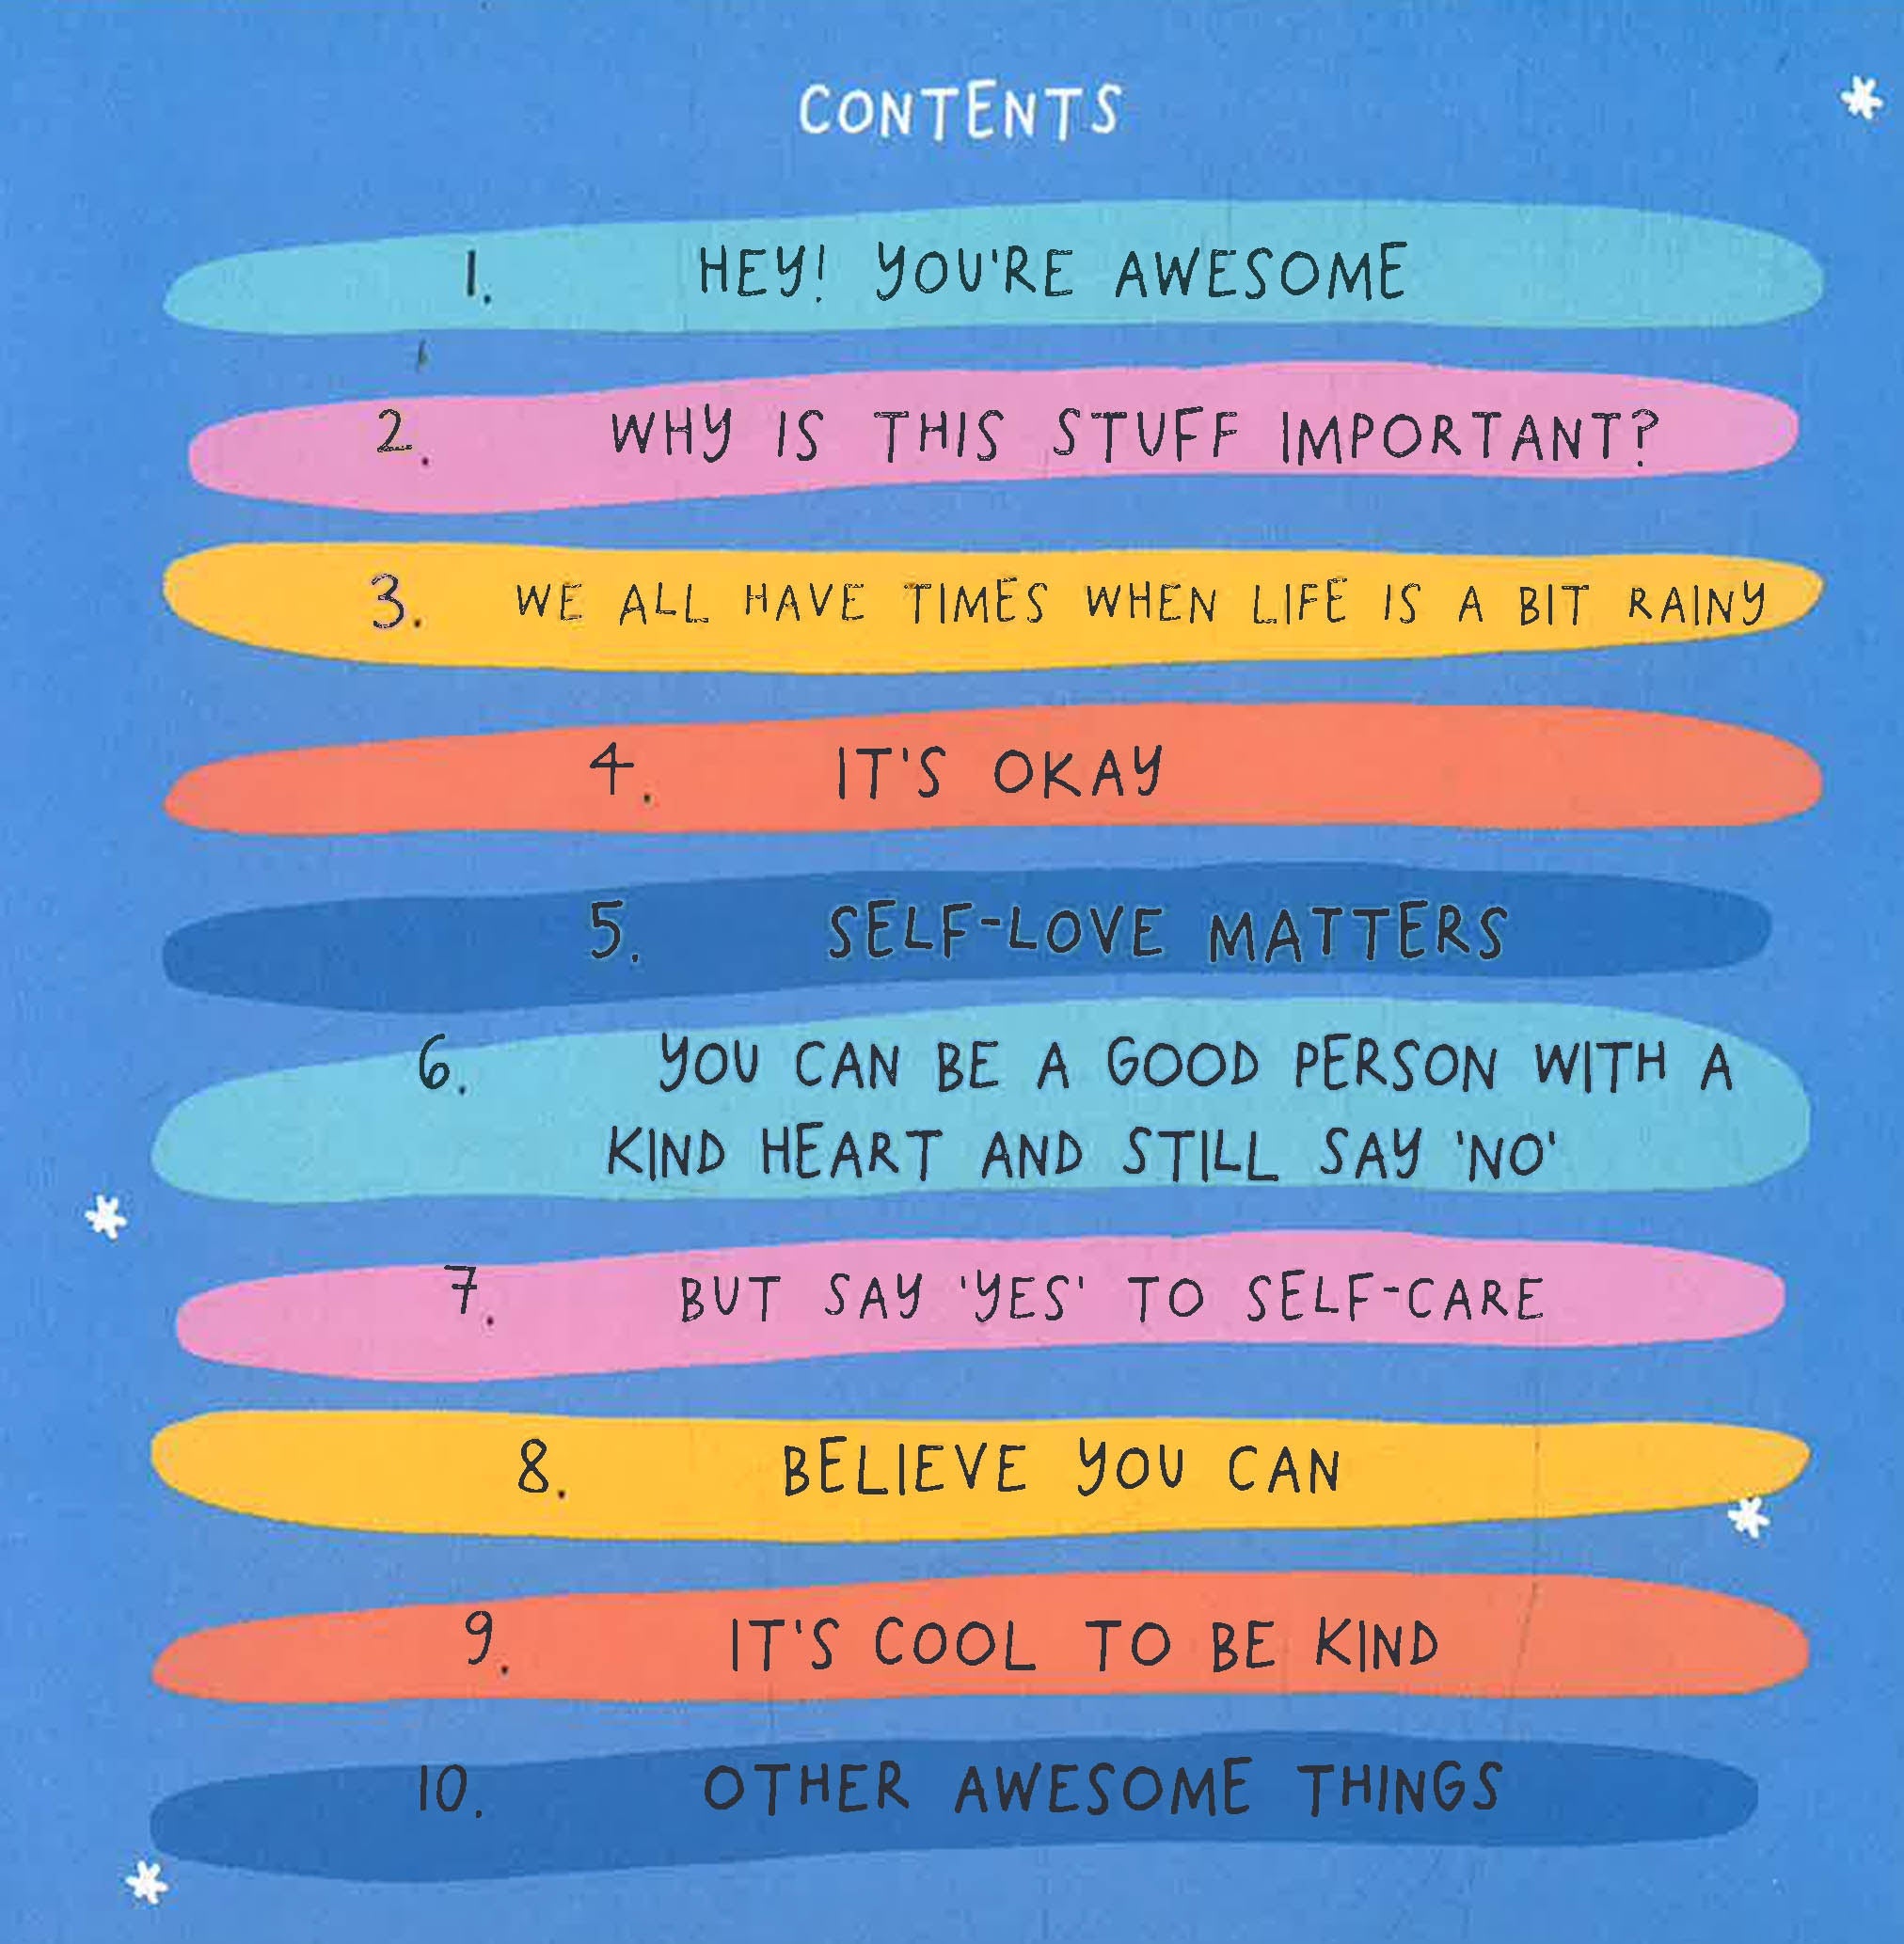 CONTENTS
1. HEY! YOU'RE AWESOME
2. WHY IS THIS STUFF IMPORTANT?
3. WE ALL HAVE TIMES WHEN LIFE IS A BIT RAINY
4. IT'S OKAY
5. SELF-LOVE MATTERS
6. YOU CAN BE A GOOD PERSON WITH A
KIND HEART AND STILL SAY 'NO'
7. BUT SAY 'YES' TO SELF-CARE
8. BELIEVE YOU CAN
9. IT'S COOL TO BE KIND
10. OTHER AWESOME THINGS